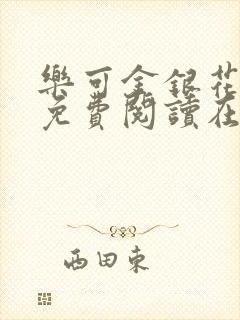 樂可金銀花
免費閱讀在
西田東